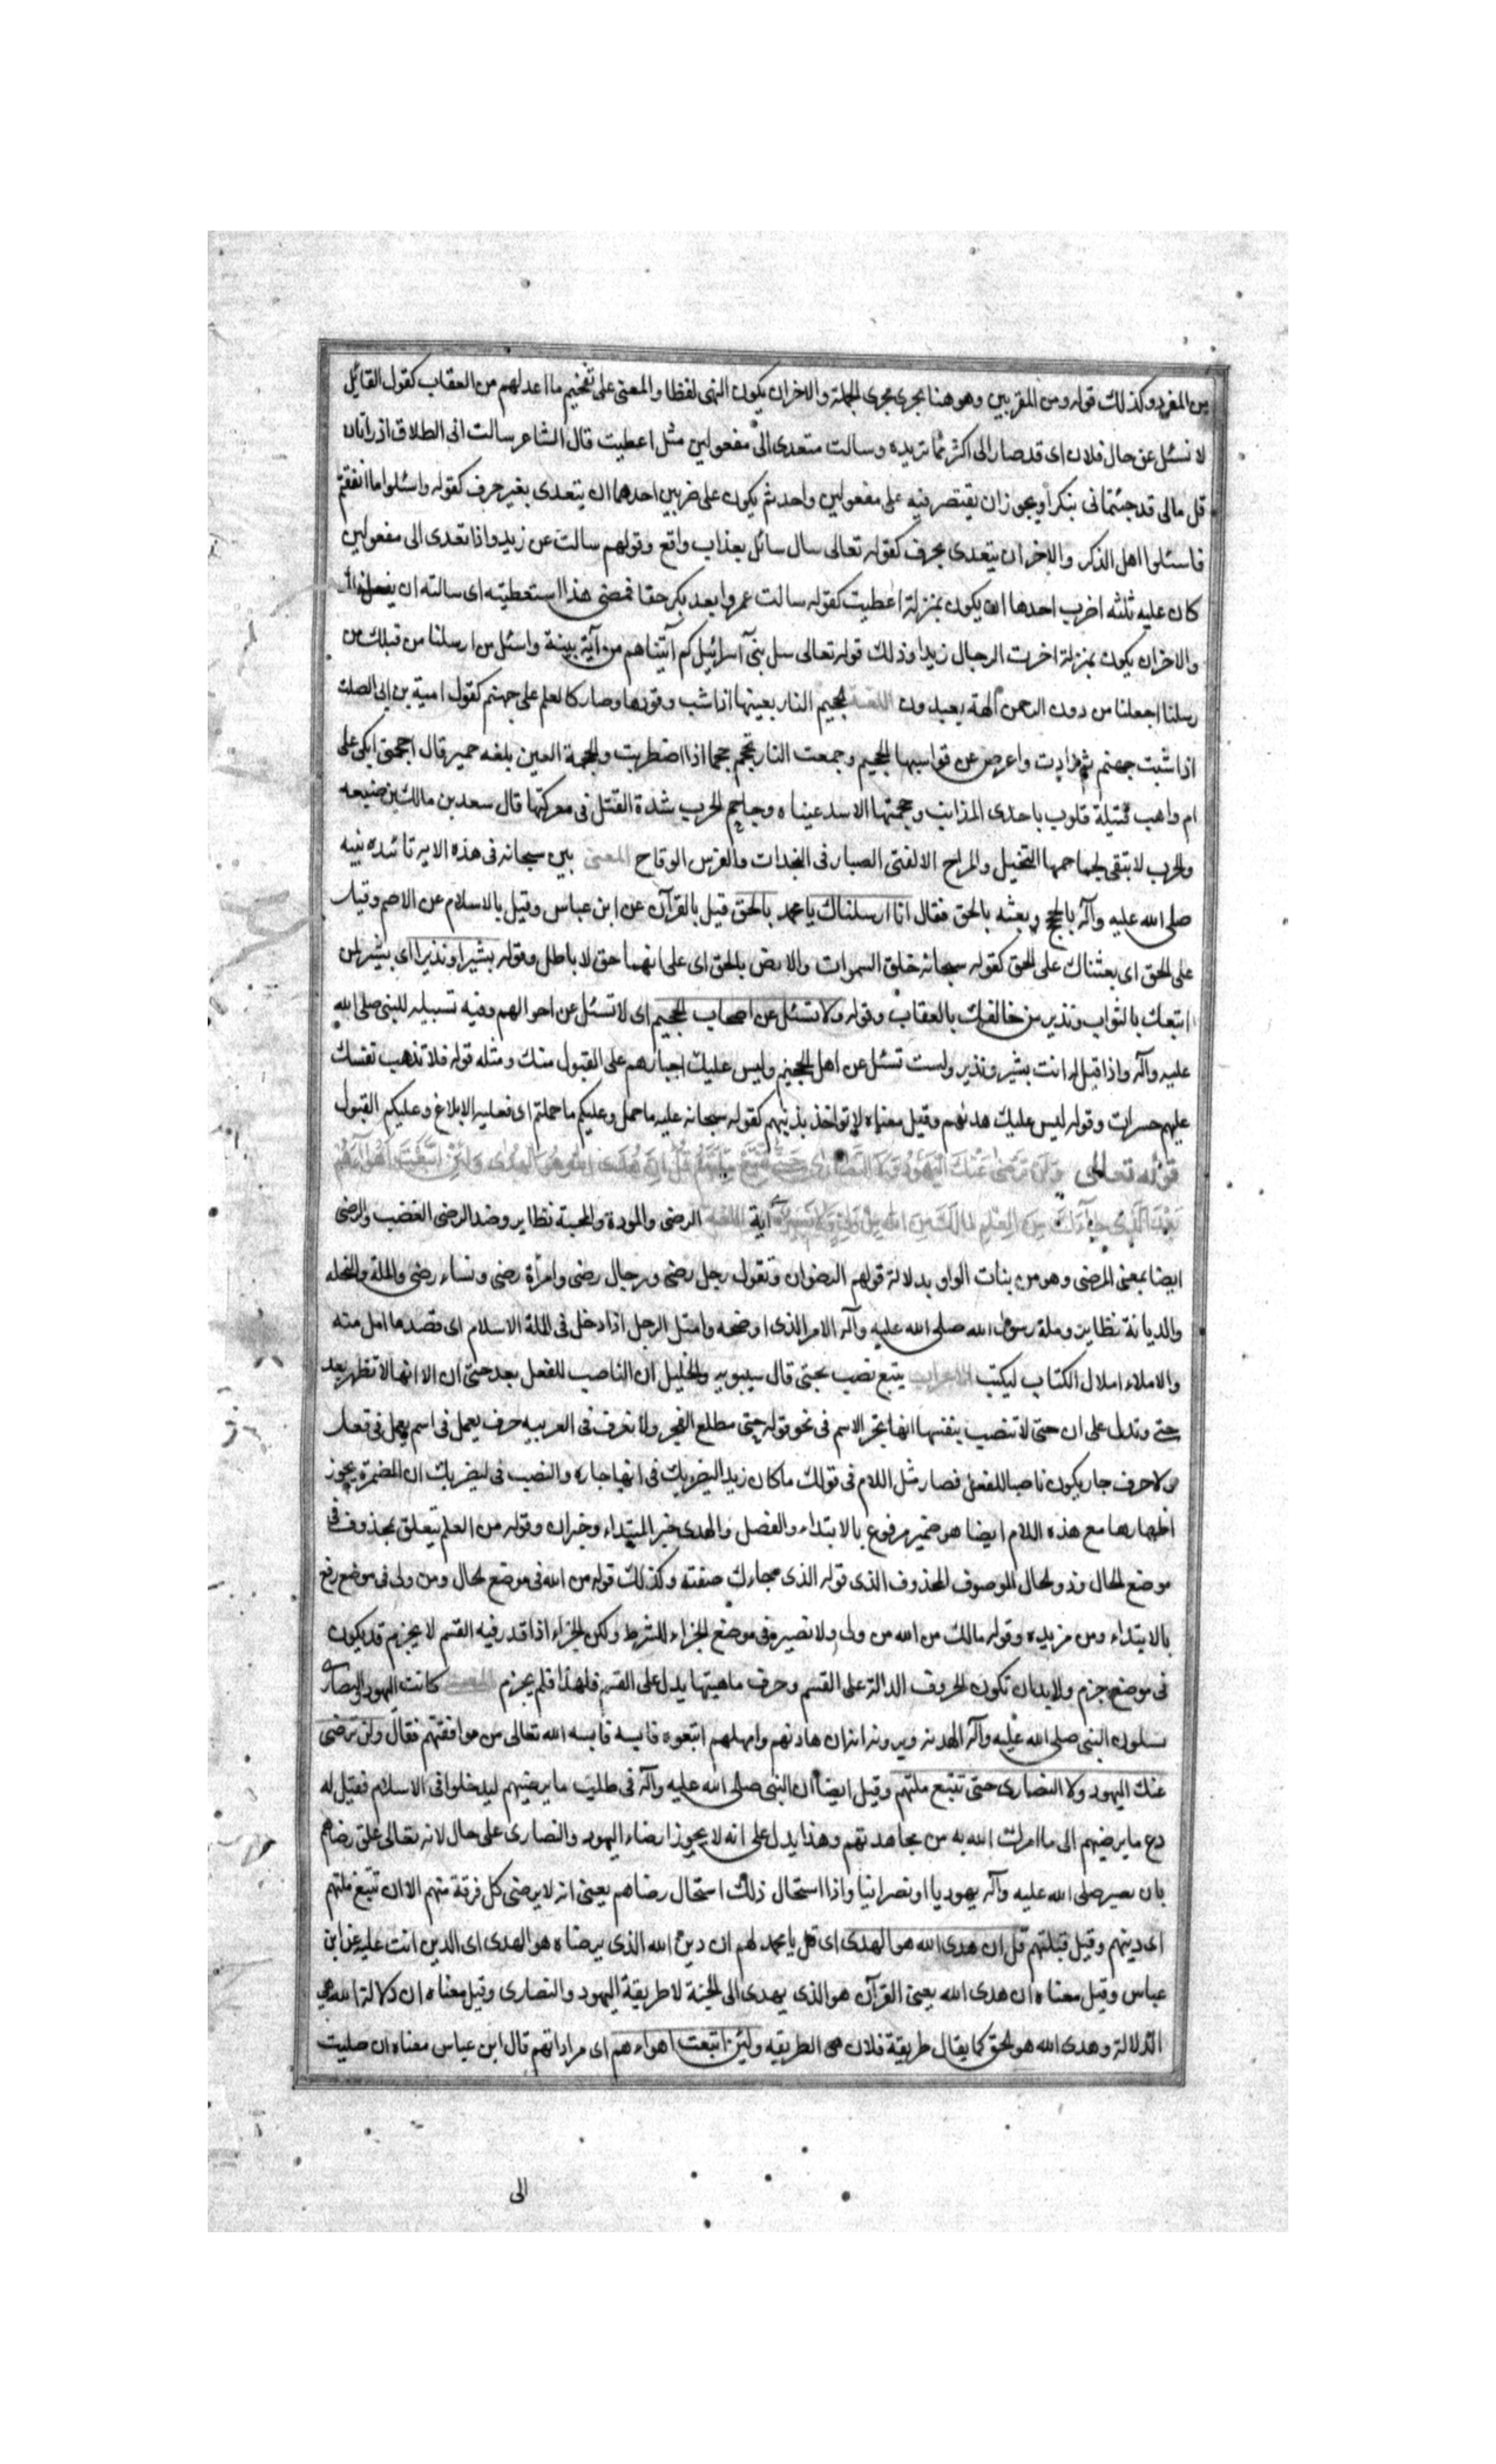 من المفرد وكذلك قوله ومن المقربين وهو هنا يجرى مجرى الجملة والاخر ان يكون النهى لفظا والمعنى على تفخيم ما اعد لهم من العقاب كقول القائل
لا تسئل عن حال فلان اى قد صار الى اكثر مما تريده وسالت متعدى الى مفعولين مثل اعطيت قال الشاعر سالتانى الطلاق اذ راتان
قل مالى قد جئتمانى بنكر ويجوز ان يقتصر فيه على مفعولين واحد ثم يكون على ضربين احدهما ان يتعدى بغير حرف كقوله واسئلوا ما انفقتم
فاسئلوا اهل الذكر والاخر ان يتعدى بحرف كقوله تعالى سال سائل بعذاب واقع وقولهم سالت عن زيد واذا تعدى الى مفعولين
كان عليه ثلثه اضرب احدها ان يكون بمنزلة اعطيت كقوله سالت عمروا بعد بكر حقا فمعنى هذا استعطيته اى سالته ان يفعل ذلك
والاخر ان يكون بمنزلة اخرت الرجال زيدا وذلك قوله تعالى سل بنى آسرائيل كم آتيناهم من آية بينة واسئل من ارسلنا من قبلك من
رسلنا اجعلنا من دون الرحمن آلهة يعبدون اللغة الجحيم النار بعينها اذا شب وقودها وصار كالعلم على جهنم كقول امية بن ابى الصلت
اذا شبت جهنم ثم زادت واعرض عن قوابسها الجحيم وجمعت النار تجحم جحما اذا اضطربت والجحمة العين بلغه حمير قال اجحمتى ابكى على
ام واهب قتيلة قلوب باحدى المذانب وجحمتها الاسد عيناه وجاحم الحرب شدة القتل فى معركتها قال سعد بن مالك بن ضبيعه
والحرب لا يبقى لجاحمها التخيل والمراح الا الفتى الصبار فى النجدات والفرس الوقاح المعنى بين سبحانه فى هذه الاية تائيده نبيه
صلى الله عليه وآله بالحجج وبعثه بالحق فقال انا ارسلناك يا محمد بالحق قيل بالقرآن عن ابن عباس وقيل بالاسلام عن الاصم وقيل
على الحق اى بعثناك على الحق كقوله سبحانه خلق السموات والارض بالحق اى على انهما حق لا باطل وقوله بشيرا ونذيرا اى بشير لمن
اتبعك بالثواب ونذير من خالفك بالعقاب وقوله ولا تسئل عن اصحاب الجحيم اى لا تسئل عن احوالهم وفيه تسلية للنبى صلى الله
عليه وآله واذا قيل له انت بشير ونذير ولست تسئل عن اهل الجحيم وليس عليك اجبارهم على القبول منك ومثله قوله فلا تذهب نفسك
عليهم حسرات وقوله ليس عليك هدنهم وقيل معناه لا تواخذ بذنبهم كقوله سبحانه عليه ما حمل وعليكم ما حملتم اى فعليه الابلاغ وعليكم القبول
قوله تعالى ولن ترضى عنك اليهود ولا النصارى حتى تتبع ملتهم قل ان هدى الله هو الهدى ولئن اتبعت اهوآءهم
بعد الذى جآءك من العلم مالك من الله من ولى ولا نصير آية اللغة الرضى والمودة والمحبة نظاير وضد الرضى الغضب والرضى
ايضا بمعنى المرضى وهو من بنات الواو بدلالة قولهم الرضوان وتقول رجل رضى ورجال رضى وامرأة رضى ونساء رضى والملة والنحله
والديانة نظاير وملة رسول الله صلى الله عليه وآله الامر الذى اوضحه وامتل الرجل اذا دخل فى الملة الاسلام اى قصد ما امل منه
والاملاء املال الكتاب ليكتب الاعراب يتبع نصب بحتى قال سيبويه والخليل ان الناصب للفعل بعد حتى ان الا انها لا تظهر بعد
حتى وتدل على ان حتى لا تنصب بنفسها انها تجر الاسم فى نحو قوله حتى مطلع الفجر ولا نعرف فى العربيه حرف يعمل فى اسم يعمل فى فعل
ولا حرف جار يكون ناصبا للفعل فصار مثل اللام فى قولك ما كان زيد ليضربك فى انها جارة والنصب فى ليضربك ان المضمرة يجوز
اظهارها مع هذه اللام ايضا هو ضمير مرفوع بالابتداء والفصل والهدى خبر المبتداء وخبر ان وقوله من العلم يتعلق بمحذوف فى
موضع الحال وذو الحال الموصوف المحذوف الذى قوله الذى جاءك صفته وكذلك قوله من الله فى موضع الحال ومن ولى فى موضع رفع
بالابتداء ومن مزيده وقوله مالك من الله من ولى ولا نصير فى موضع الجزاء للشرط ولكن الجزاء اذا قدر فيه القسم لا يجزم قد يكون
فى موضع جزم ولا بد ان تكون الحروف الدالة على القسم وحرف ماهيتها يدل على القسم فلهذا فلم يجزم المعنى كانت اليهود والنصارى
يسلون النبى صلى الله عليه وآله الهدنة ويرونه انه ان هادنهم وامهلهم اتبعوه فايسه الله تعالى من موافقتهم فقال ولن ترضى
عنك اليهود ولا النصارى حتى تتبع ملتهم وقيل ايضا ان النبى صلى الله عليه وآله فى طلب ما يرضيهم ليدخلوا فى الاسلام فقيل له
دع ما يرضيهم الى ما امرك الله به من مجاهدتهم وهذا يدل على انه لا يجوز ارضاء اليهود والنصارى على حال لانه تعالى علق رضاهم
بان يصير صلى الله عليه وآله يهوديا او نصرانيا واذا استحال ذلك استحال رضاهم يعنى انه لا يرضى كل فرقة منهم الا ان تتبع ملتهم
اى دينهم وقيل قبلتهم قل ان هدى الله هو الهدى اى قل يا محمد لهم ان دين الله الذى يرضاه هو الهدى اى الدين انت عليه عن ابن
عباس وقيل معناه ان هدى الله يعنى القرآن هو الذى يهدى الى الجنة لا طريقة اليهود والنصارى وقيل معناه ان دلالة الله هى
الدلالة وهدى الله هو الحق كما يقال طريقة فلان هى الطريقه ولئن اتبعت اهواءهم اى مراداتهم قال ابن عباس معناه ان صليت
الى